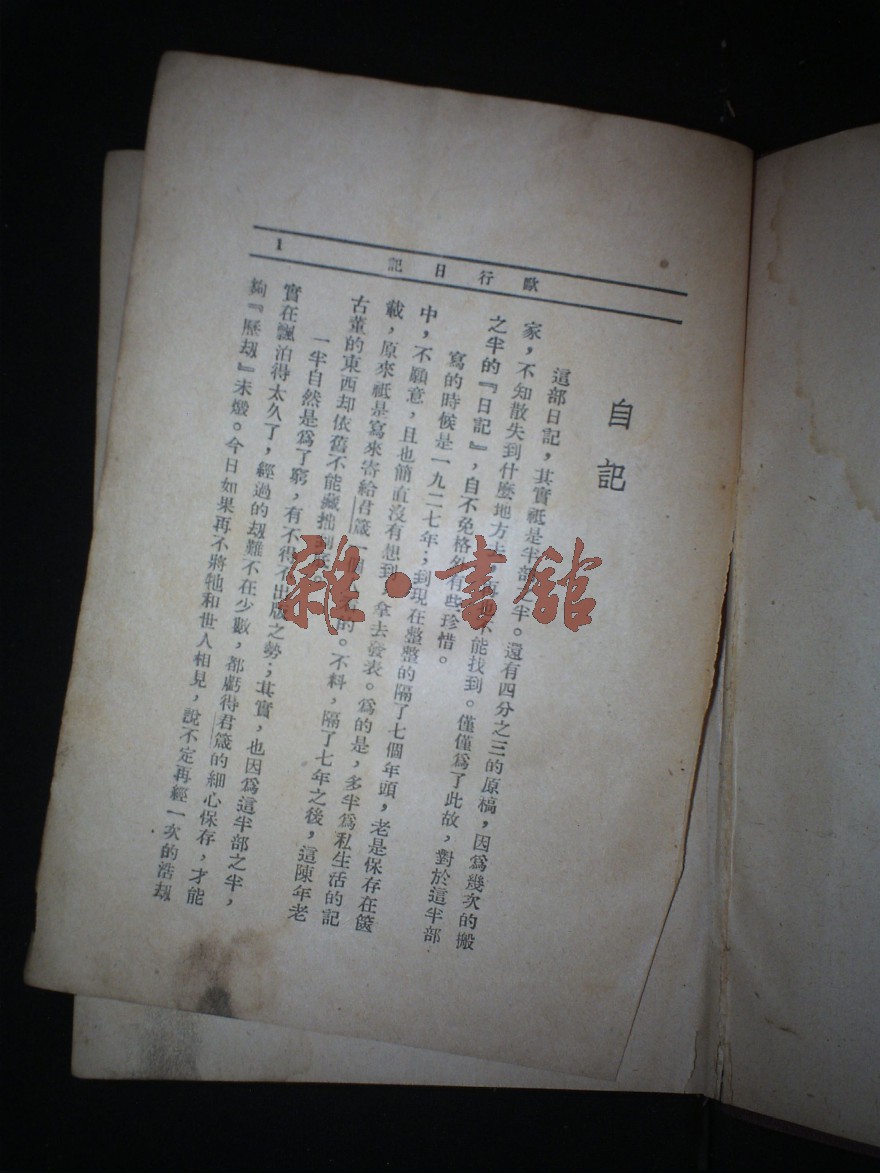 歐行日記
1
自記
這部日記，其實祇是半部之半。還有四分之三的原稿，因爲幾次的搬
家，不知散失到什麼地方去，再也不能找到。僅僅爲了此故，對於這半部
之半的『日記』，自不免格外有些珍惜。
寫的時候是一九二七年；到現在整整的隔了七個年頭，老是保存在篋
中，不願意，且也簡直沒有想到，拿去發表。爲的是，多半爲私生活的記
載，原來祇是寫來寄給君箴一個人看的。不料，隔了七年之後，這陳年老
古董的東西却依舊不能藏拙到底。
一半自然是爲了窮，有不得不出版之勢；其實，也因爲這半部之半，
實在飄泊得太久了，經過的刼難不在少數，都虧得君箴的細心保存，才能
夠『歷刼』未燬。今日如果再不將牠和世人相見，說不定再經一次的浩刼
雜·書館